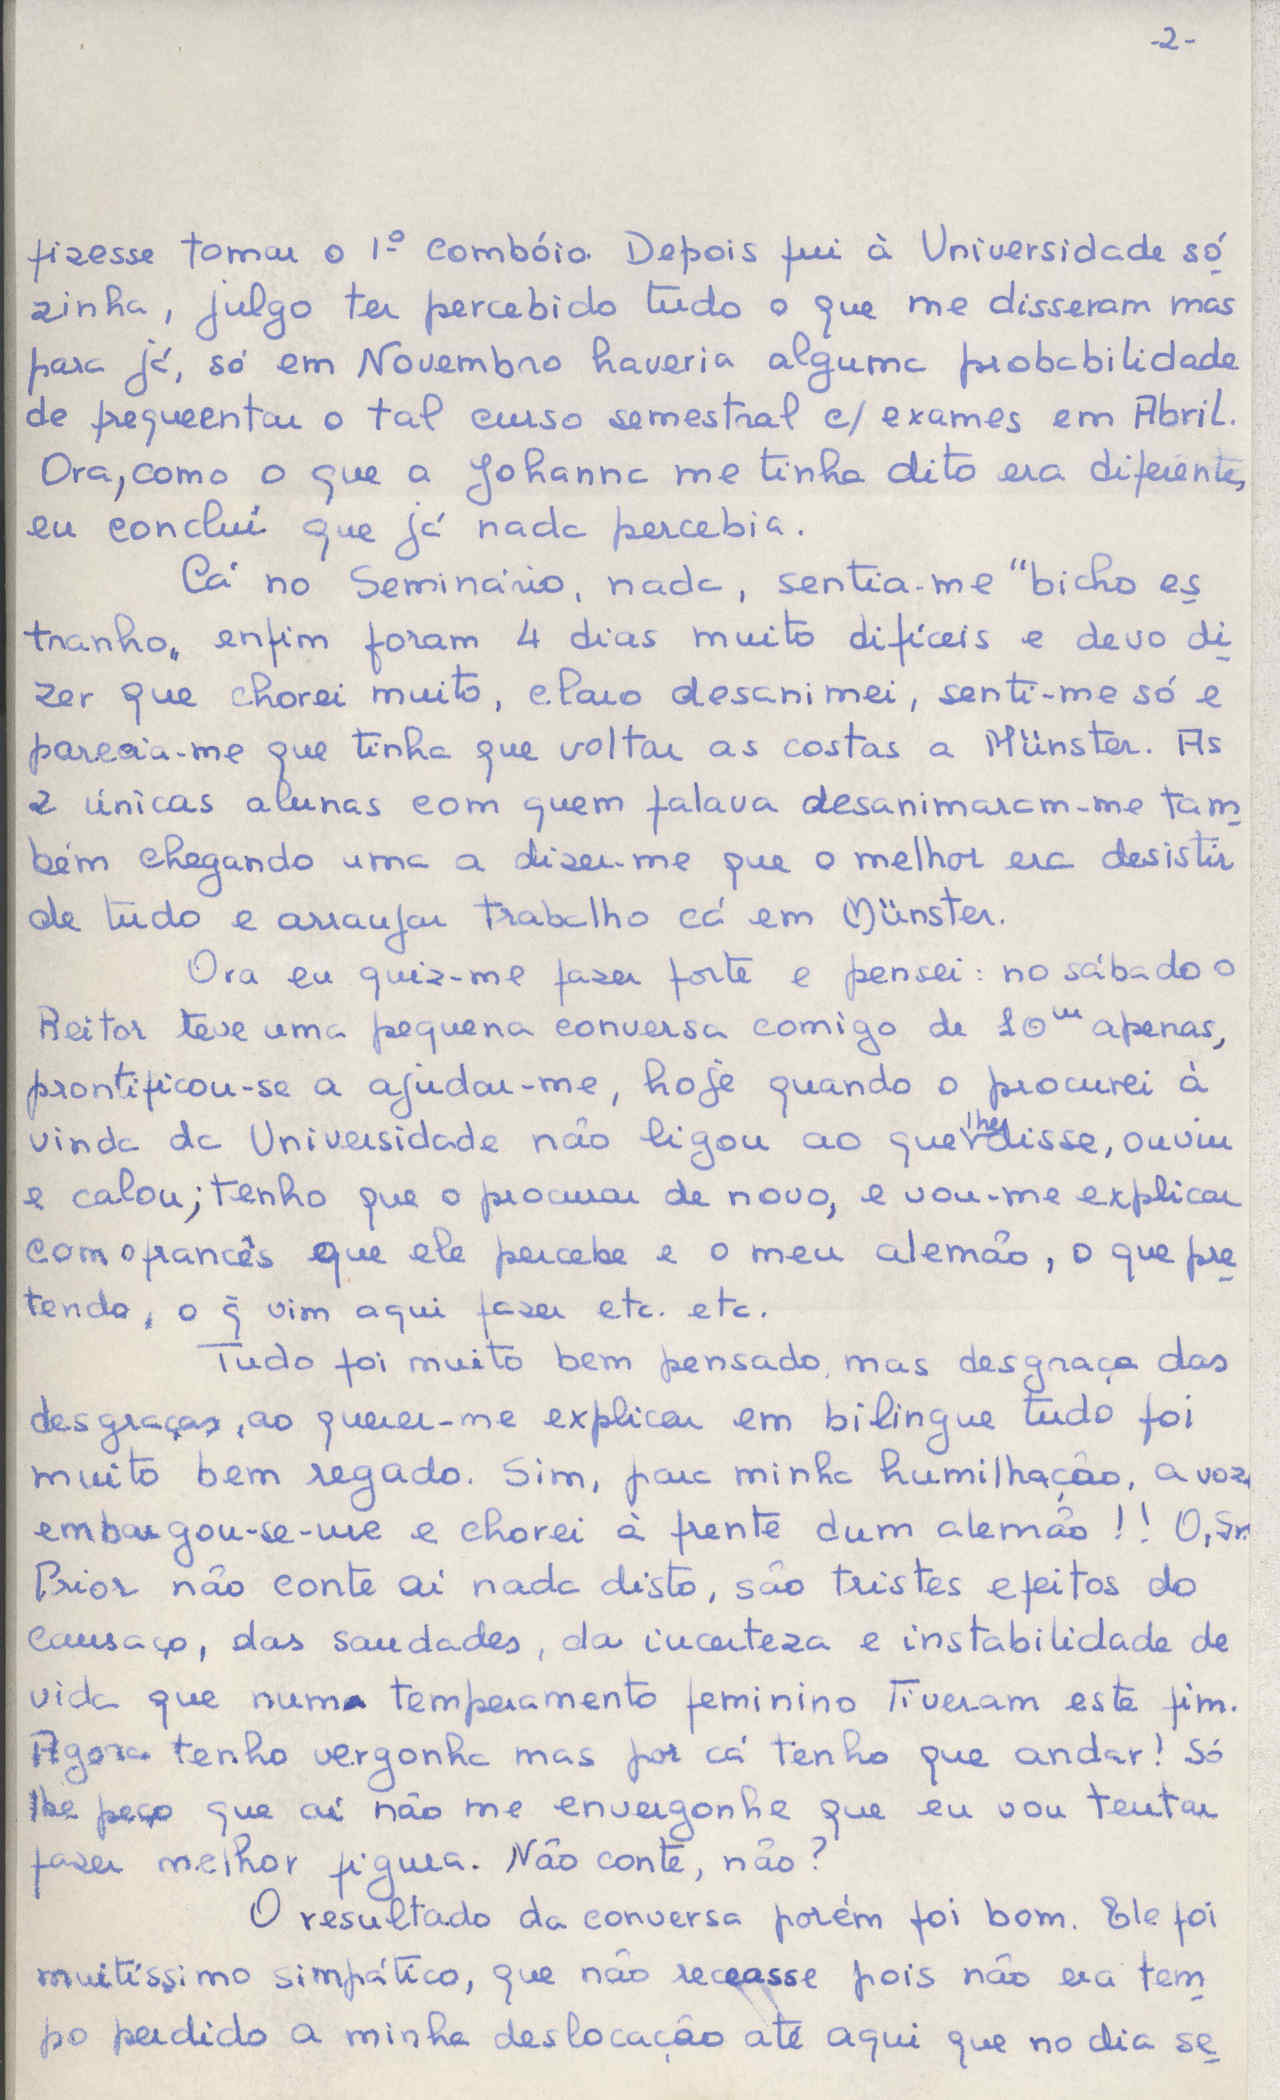 -2-
fizesse tomar o 1º combóio. Depois fui à Universidade só
zinha, julgo ter percebido tudo o que me disseram mas
para já, só em Novembro haveria alguma probabilidade
de frequentar o tal curso semestral c/ exames em Abril.
Ora, como o que a Johanna me tinha dito era diferente,
eu concluí que já nada percebia.
Cá no Seminário, nada, sentia-me "bicho es
tranho" enfim foram 4 dias muito difíceis e devo di
zer que chorei muito, claro desanimei, senti-me só e
parecia-me que tinha que voltar as costas a Münster. As
2 únicas alunas com quem falava desanimaram-me tam
bém chegando uma a dizer-me que o melhor era desistir
de tudo e arranjar trabalho cá em Münster.
Ora eu quiz-me fazer forte e pensei: no sábado o
Reitor teve uma pequena conversa comigo de 10m apenas,
prontificou-se a ajudar-me, hoje quando o procurei à
vinda da Universidade não ligou ao que lhe disse, ouviu
e calou; tenho que o procurar de novo, e vou-me explicar
com o francês que ele percebe e o meu alemão, o que pre
tendo, o q̃ vim aqui fazer etc. etc.
Tudo foi muito bem pensado, mas desgraça das
desgraças, ao querer-me explicar em bilingue tudo foi
muito bem regado. Sim, para minha humilhação, a voz
embargou-se-me e chorei à frente dum alemão!! O, Sr.
Prior não conte aí nada disto, são tristes efeitos do
cansaço, das saudades, da incerteza e instabilidade de
vida que numa temperamento feminino Tiveram este fim.
Agora tenho vergonha mas por cá tenho que andar! Só
lhe peço que aí não me envergonhe que eu vou tentar
fazer melhor figura. Não conte, não?
O resultado da conversa porém foi bom. Ele foi
muitíssimo simpático, que não receasse pois não era tem
po perdido a minha deslocação até aqui que no dia se